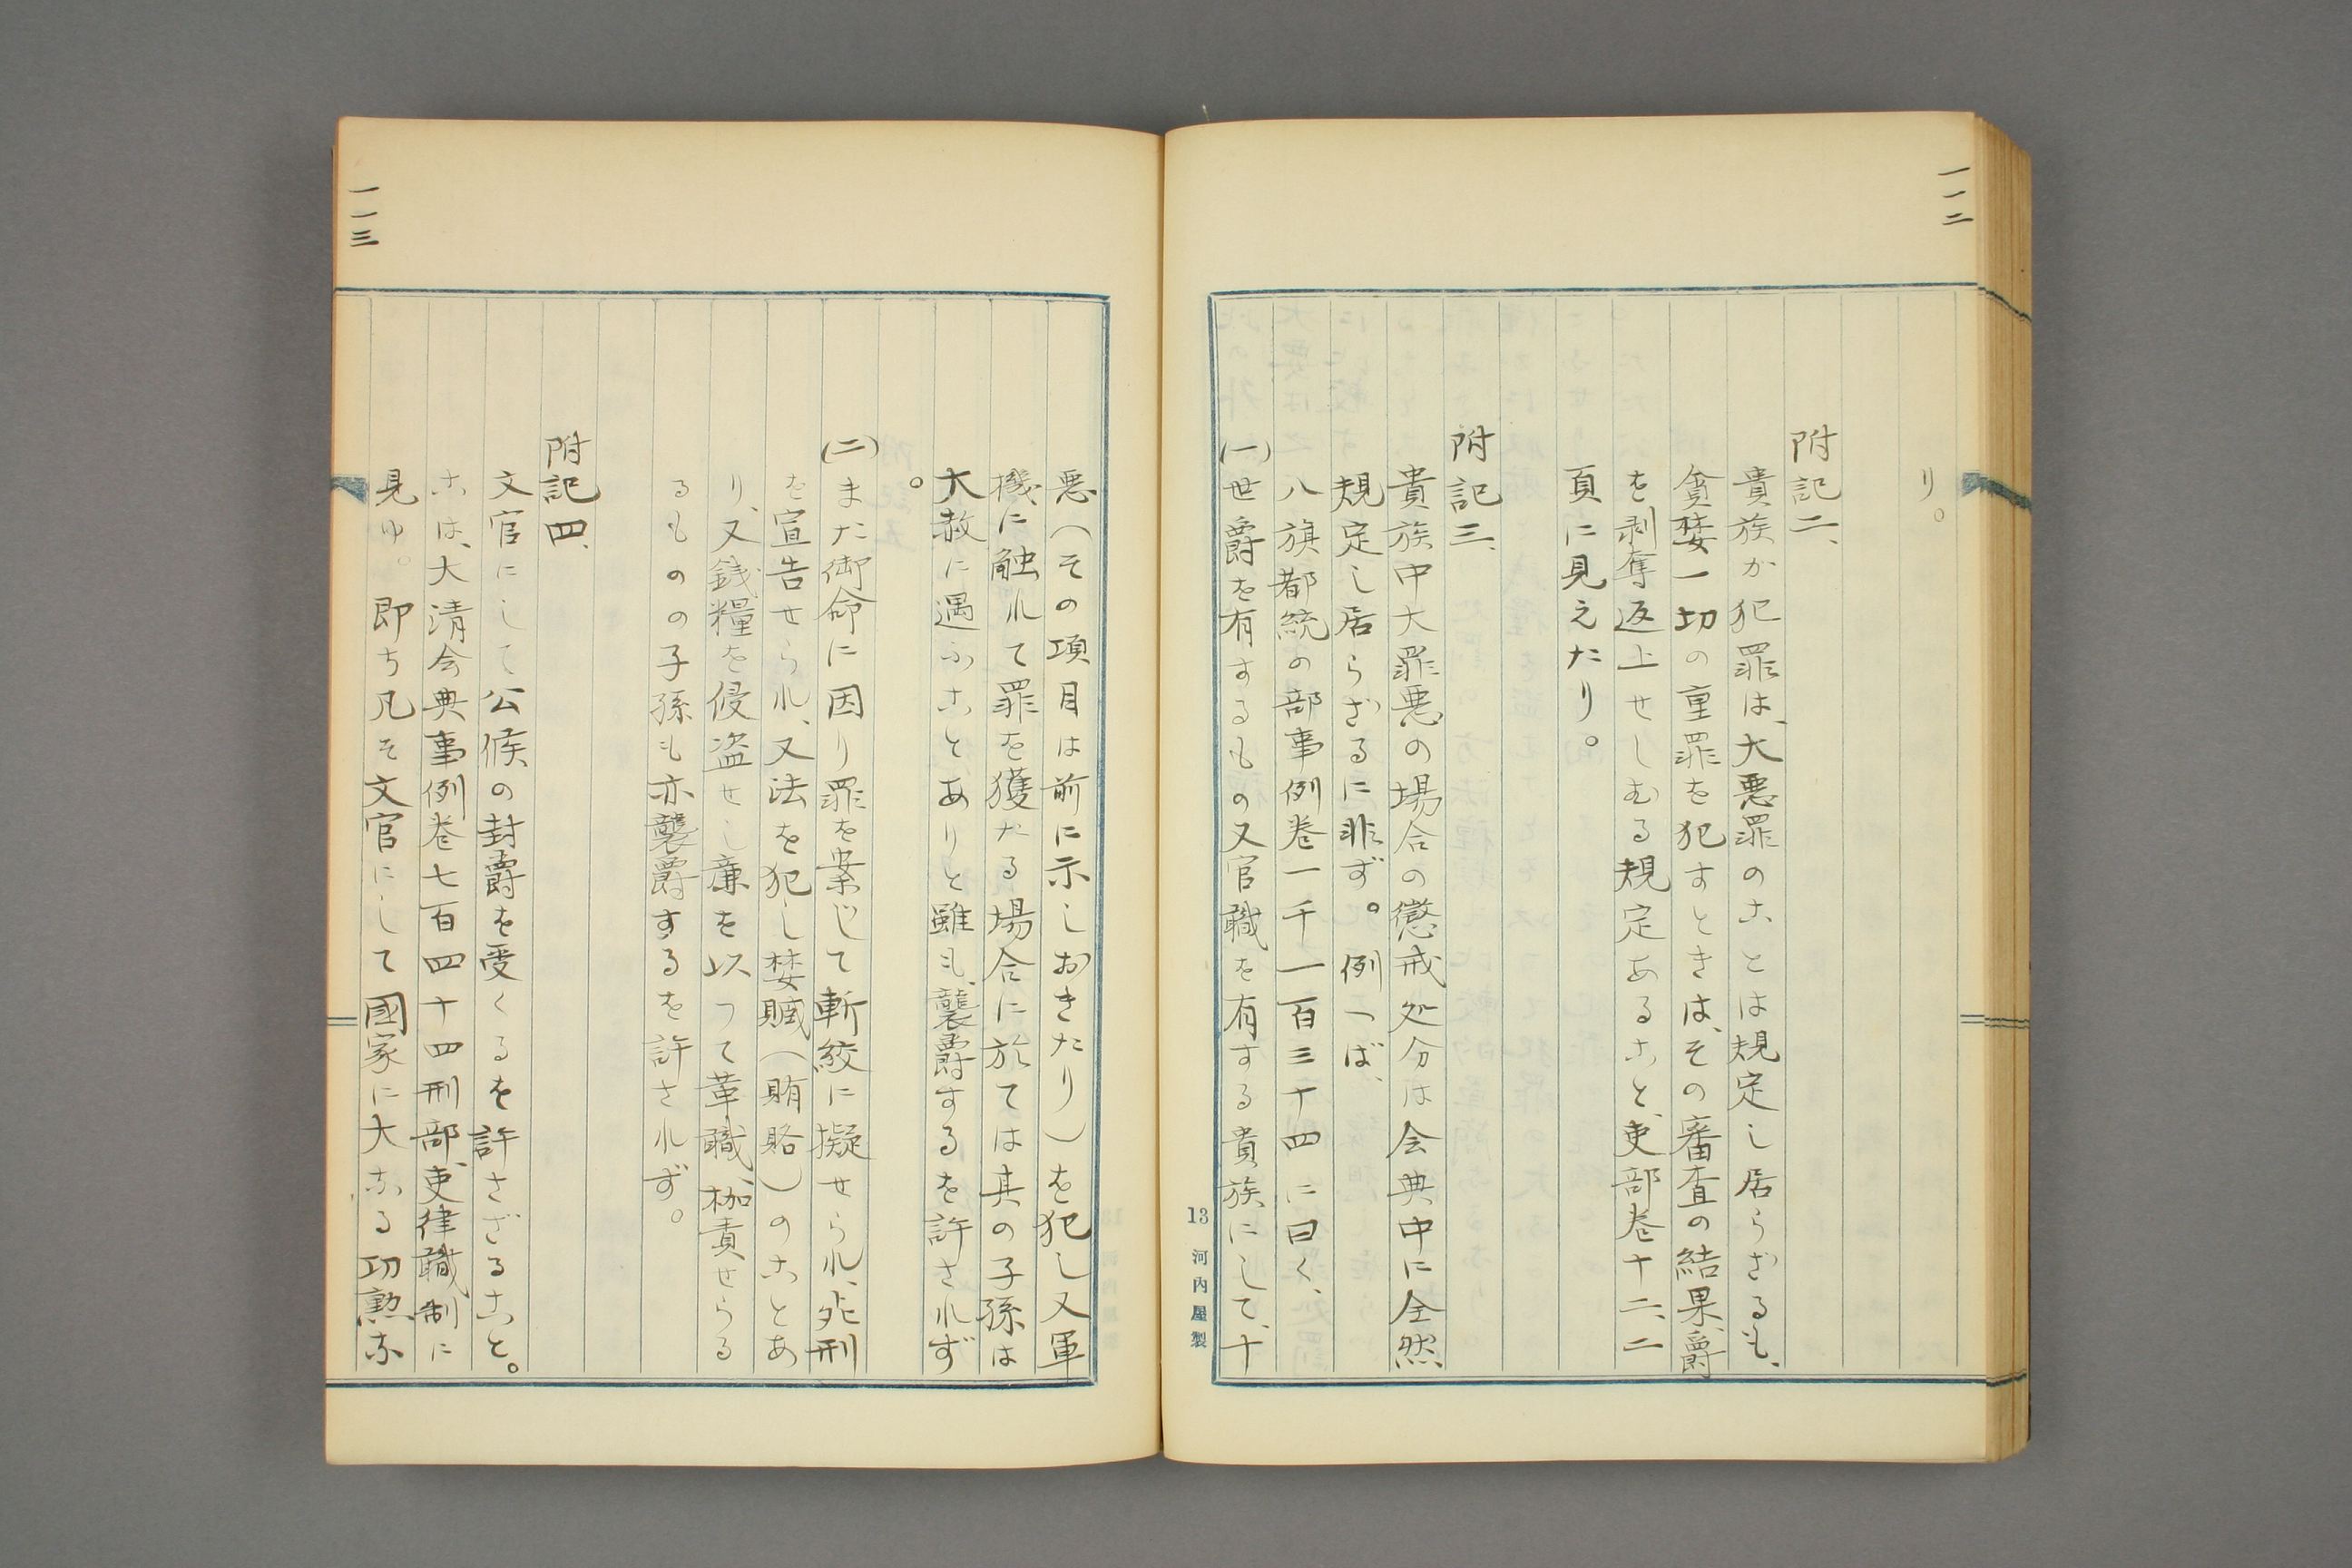 一一二
り。
附記二、
貴族か犯罪は、大悪罪のことは規定し居らざるも、
貪婪一切の重罪を犯すときは、その審査の結果、爵
を剥奪返上せしむる規定あること、吏部巻十二、二
頁に見えたり。
附記三、
貴族中大罪悪の場合の懲戒処分は会典中に全然
規定し居らざるに非ず。例へば、
八旗都統の部事例巻一千一百三十四に曰く、
(一)世爵を有するもの又官職を有する貴族にして、十
13 河内屋製
悪(その項目は前に示しおきたり)を犯し又軍
機に触れて罪を獲たる場合に於ては其の子孫は
大赦に遇ふことありと雖も、襲爵するを許されず
。
(二)また御命に因り罪を案じて斬絞に擬せられ、死刑
を宣告せられ、又法を犯し婪贓(賄賂)のことあ
り、又銭糧を侵盗せし廉を以つて革職、枷責せらる
るものの子孫も亦襲爵するを許されず。
附記四、
文官にして公候の封爵を受くるを許さざること。
こは、大清会典事例巻七百四十四刑部、吏律職制に
見ゆ。即ち凡そ文官にして國家に大なる功勲な
一一三